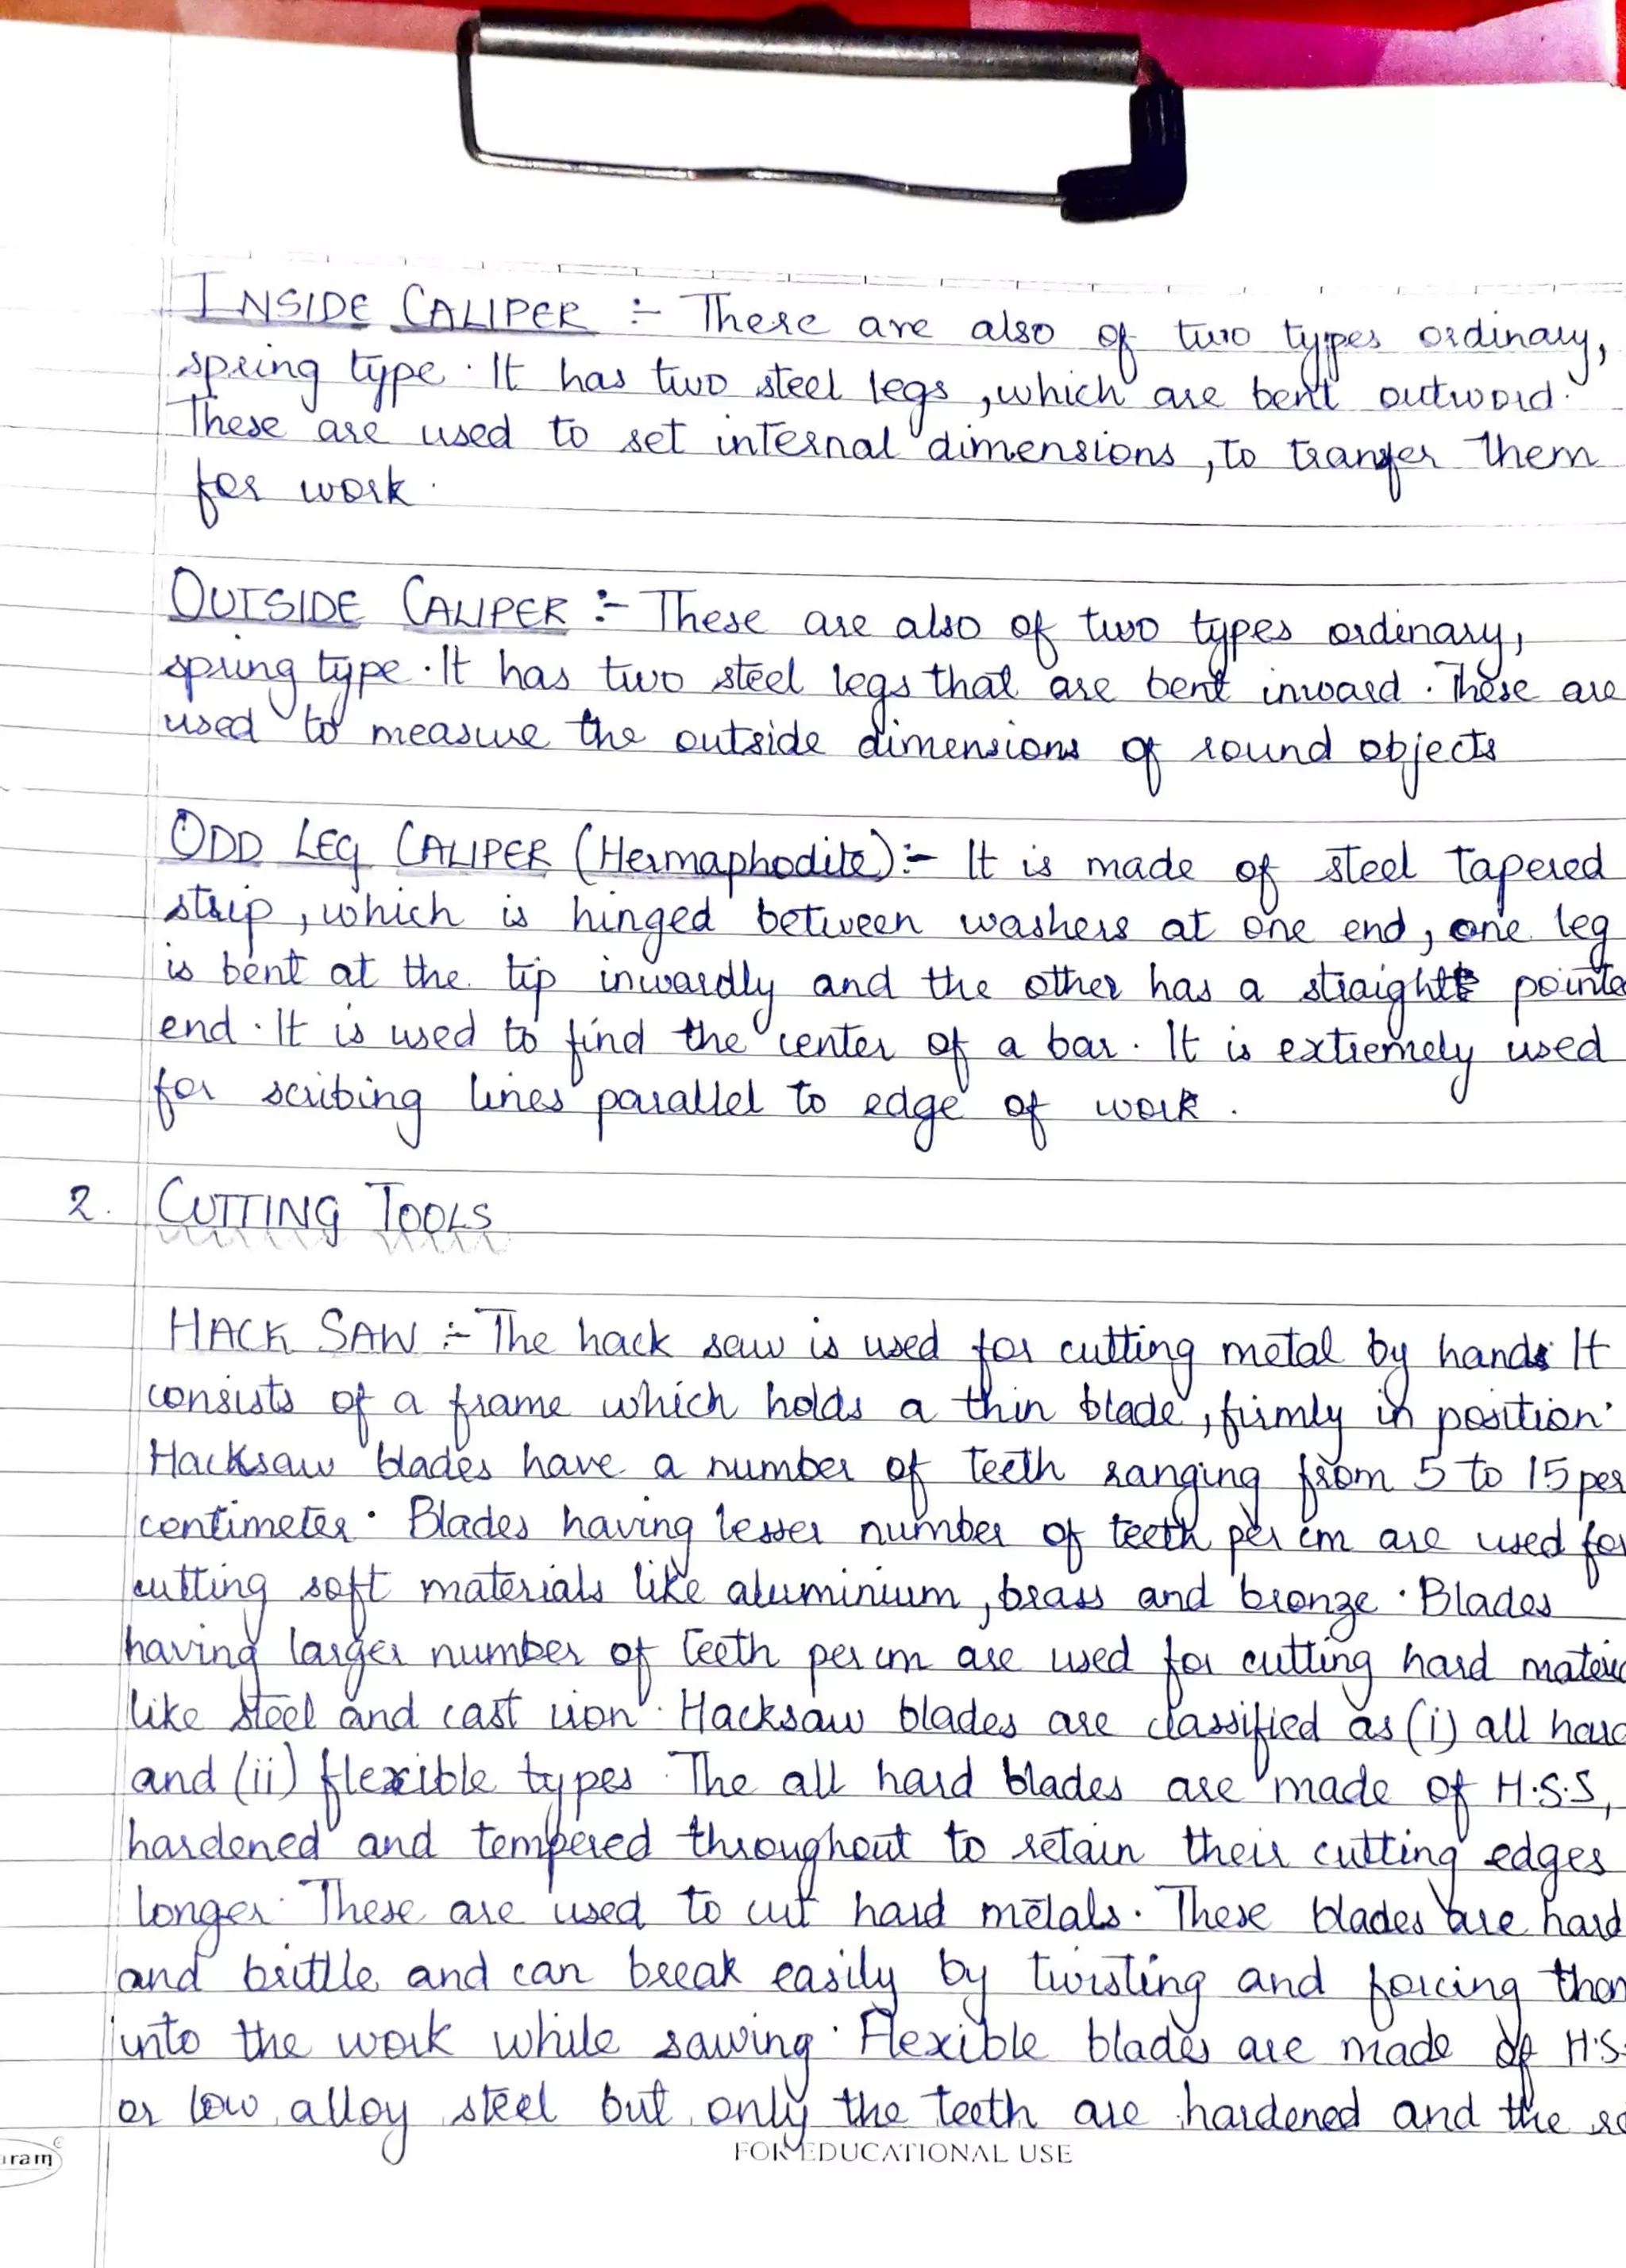 INSIDE CALIPER :- These are also of two types ordinary,
spring type. It has two steel legs, which are bent outword.
These are used to set internal dimensions, to tranfer them
for work.
OUTSIDE CALIPER :- These are also of two types ordinary,
spring type. It has two steel legs that are bent inward. These are
used to measure the outside dimensions of round objects
ODD LEG CALIPER (Hermaphodite) :- It is made of steel tapered
strip, which is hinged between washers at one end, one leg
is bent at the tip inwardly and the other has a straight pointe
end. It is used to find the center of a bar. It is extremely used
for scribing lines parallel to edge of work.
2. CUTTING TOOLS
HACK SAW :- The hack saw is used for cutting metal by hand. It
consists of a frame which holds a thin blade, firmly in position.
Hacksaw blades have a number of teeth ranging from 5 to 15 per
centimeter. Blades having lesser number of teeth per cm are used for
cutting soft materials like aluminium, brass and bronze. Blades
having larger number of teeth per cm are used for cutting hard
like steel and cast iron. Hacksaw blades are classified as (i) all
and (ii) flexible types. The all hard blades are made of H.S.S,
hardened and tempered throughout to retain their cutting edges
longer. These are used to cut hard metals. These blades are hard
and brittle and can break easily by twisting and forcing
into the work while sawing. Flexible blades are made of H.S.
or low alloy steel but only the teeth are hardened and the
FOR EDUCATIONAL USE